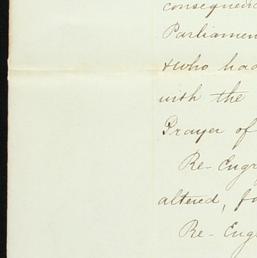 consequen
Parliamen
& who had
with the
Prayer of
Re-Engr
altered, f
Re-Eng